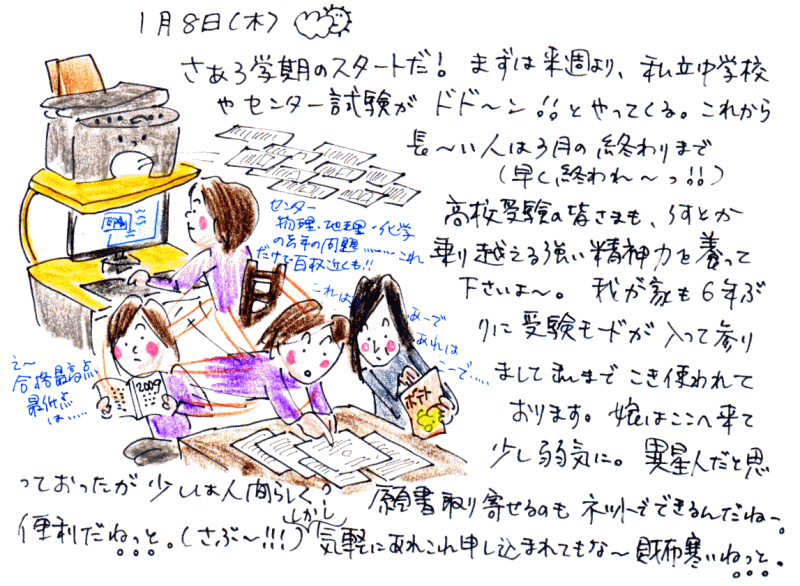 1月8日(木)
さあ3学期のスタートだ! まずは来週より、私立中学校
やセンター試験が ドド〜ン!!とやってくる。これから
長〜い人は3月の終わりまで
(早く終われ〜っ!!)
高校受験の皆さまも、どうか
乗り越える強い精神力を養って
下さいよ〜。 我が家も6年ぶ
りに受験モードが入って参り
まして私まで こき使われて
おります。 娘はここへ来て
少し弱気に。 異星人だと思
っておったが 少しは人間らしく。
願書取り寄せるのも ネットでできるんだね〜。
便利だねっと。(さぶ〜!!!) しかし 気軽にあれこれ申し込まれてもな〜 財布寒いねっと。
センター
物理・地理・化学
の去年の問題………これ
だけで百枚近くも!!
これは
あーで
あれは
こーで……
え〜
合格最高点
最低点
は……
2009
ポテト
印刷